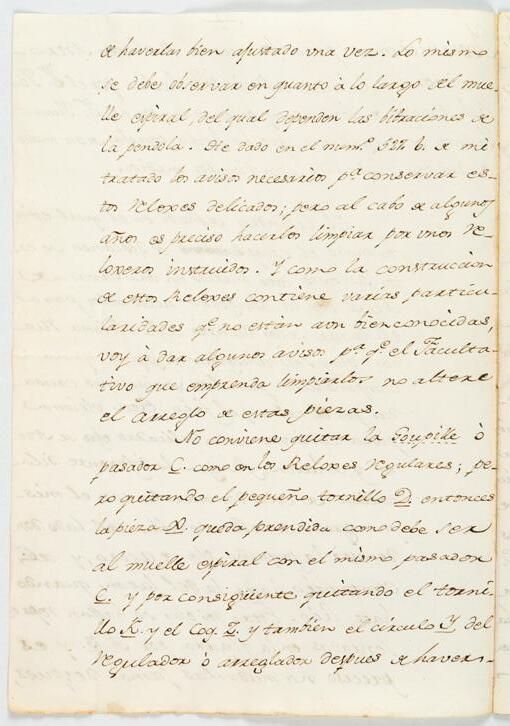 de haverlas bien ajustado una vez. Lo mismo
se debe observar en quanto à lo largo del mue-
lle espiral, del qual dependen las bibraciones de
la pendola. He dado en el num.º 527 b. de mi
tratado los avisos necesarios p.ª conservar es-
tos Reloxes delicados; pero al cabo de algunos
años es preciso hacerlos limpiar por unos Re-
loxeros instruidos. Y como la construccion
de estos Reloxes contiene varias particu-
laridades q.e no estàn aun bien conocidas,
voy à dar algunos avisos p.ª q.e el Faculta-
tivo que emprenda limpiarlos no altere
el arreglo de estas piezas.
No conviene quitar la Goupille ò
pasador C. como en los Reloxes regulares; pe-
ro quitando el pequeño tornillo D. entonces
la pieza X. queda prendida como debe ser
al muelle espiral con el mismo pasador
C. y por consiguiente quitando el torni-
llo K. y el Coq. Z. y tambien el circulo Y del
regulador ò arreglador despues de haver